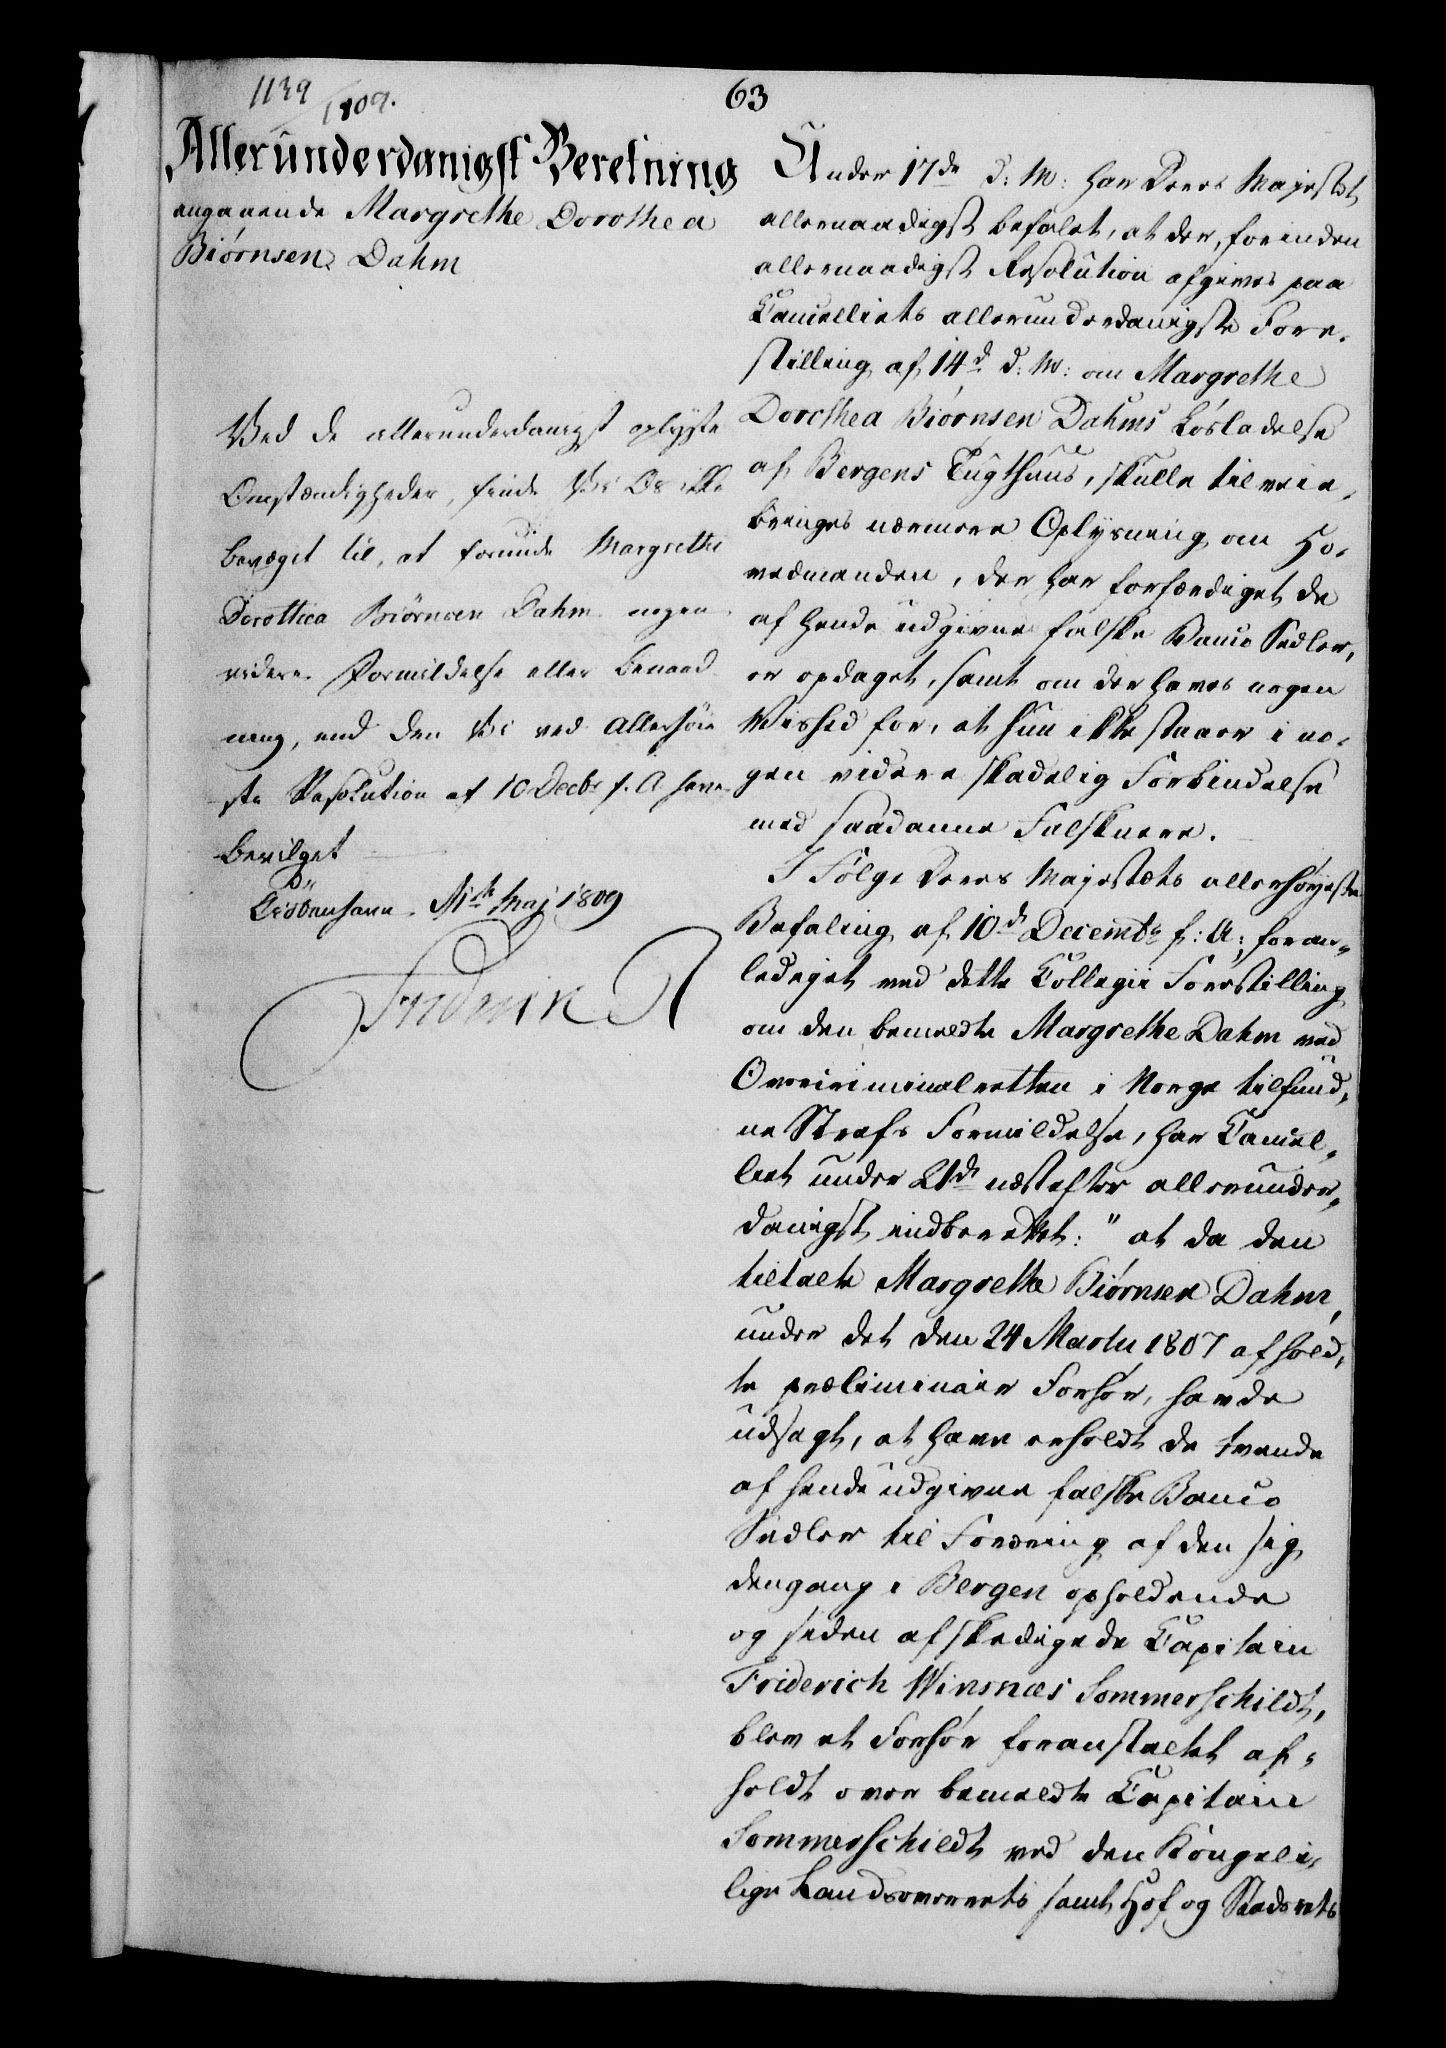 1139
/1809.
63
Allerunderdanigst Beretning
angaaende Margrethe Dorothea
Biørnsen Dahm
Ved de allerunderdanigst oplyste
Omstændigheder, finde Vi Os ikke
bevæget til, at forunde Margrethe
Dorothea Biørnsen Dahm nogen
videre Formildelse eller Benaad
ning, end den Vi ved Allerhøie
ste Resolution af 10 Decbr f. A. have
bevilget
Kiøbenhavn Maj 1809
Frederik R
Under 17de d: M: har Deres Majestet
allernaadigst befalet, at der, forinden
allernaadigst Resolution afgives paa
Cancelliets allerunderdanigste Fore-
stilling af 14d d: M: om Margrethe
Dorothea Biørnsen Dahms Løsladelse
af Bergens Tugthuus, skulle tilveie-
bringes nærmere Oplysning om Ho-
vedmanden, der har forfærdiget de
af hende udgivne falske Banco Sedler,
er opdaget, samt om der haves nogen
Vished for, at hun ikke staaer i no-
gen videre skadelig Forbindelse
med saadanne Falsknere.
I Følge Deres Majestæts allerhøjeste
Befaling af 10d Decembr f: A:, foran-
lediget ved dette Collegii Forestilling
om den bemeldte Margrethe Dahm ved
Overcriminalretten i Norge tilfund-
ne Strafs Formildelse, har Cancel-
liet under 21d næstefter allerunder-
danigst indberettet: "at da den
tiltalte Margrethe Biørnsen Dahm,
under det den 24 Martii 1807 afhold-
te præliminair Forhør, havde
udsagt, at have erholdt de tvende
af hende udgivne falske Banco
Sedler til Foræring af den sig
dengang i Bergen opholdende
og siden afskedigede Capitain
Friderich Winsnæs Sommerschildt,
blev et Forhør foranstaltet af-
holdt over bemeldte Capitain
Sommerschildt ved den Kongeli-
lige Landsoverrets samt Hof og Stadsrets